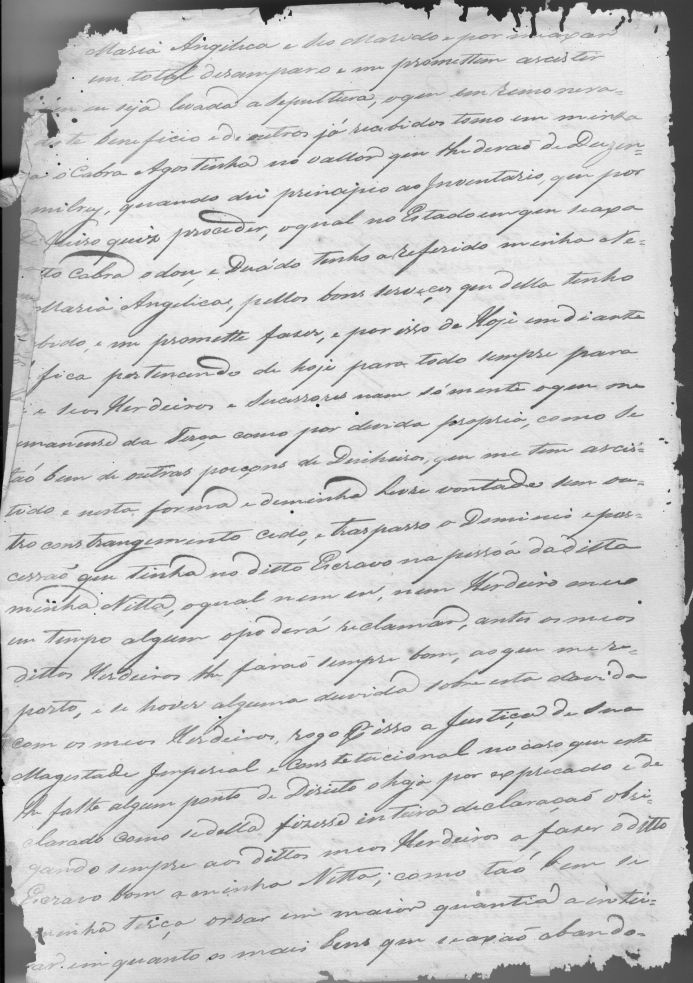 Maria Angilica e seo Marido e por me axar
em total desamparo e me promettem ascister
eu seja levada a sepultura, o que em remonera=
deste beneficio e de outros já recebidos tomo em minha
o Cabra Agostinho no vallor que lhe deraõ de Duzen=
milrey, quando dei principio ao Inventario, que por
quiz proceder, o qual no Estado em que se axa
Cabra o dou, e Duádo tenho a referido minha Ne=
Maria Angilica, pellos bons serviços que della tenho
e me promette fazer, e por isso de Hoje em diante
fica pertencendo de hoje para todo sempre para
e seos Herdeiros e Sucessores nam sómente o que me
da Terça como por devida propria, como se
taõ bem de outras porçoens de Dinheiro, que me tem ascis=
tido e nesta forma e de minha livre vontade sem ou=
tro constrangemento cedo, e traspasso o Dominio e pos=
cessaõ que tinha no ditto Escravo na pessôa da ditta
minha Nitta, o qual nem eu, nem Herdeiro meu
em tempo algum o poderá reclamar, antes os meos
dittos Herdeiros lhe faraõ sempre bom, ao que me re=
porto, e se hover alguma duvida sobre esta davida
com os meos Herdeiros, rogo pisso a Justiça de Sua
Magestade Imperial e Constetucional no caso que este
lhe falte algum ponto de Direito o haja por expricado e de
clarado como se della fizesse inteira declaraçaõ obri=
gando sempre aos dittos meos Herdeiros a fazer o ditto
Escravo bom a minha Nitta; como taõ bem se
minha terça orsar em maior quantia a intei=
em quanto os mais bens que se axaõ abando=